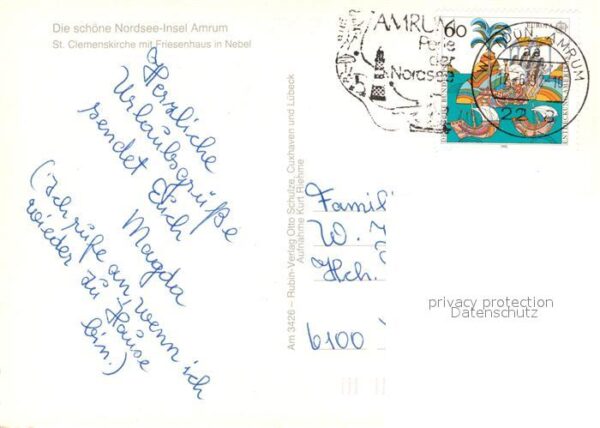 Die schöne Nordsee-Insel Amrum
St. Clemenskirche mit Friesenhaus in Nebel
Herzliche
Urlaubsgrüße
sendet Euch
Magda
(Ich rufe an, wenn ich
wieder zu Hause
bin.)
Am 3426 – Rubin-Verlag Otto Schulze, Cuxhaven und Lübeck
Aufnahme Kurt Riehme
AMRUM
Perle
der
Nordsee
60
AMRUM
Famili
W.
Hch.
6100
privacy protection
Datenschutz